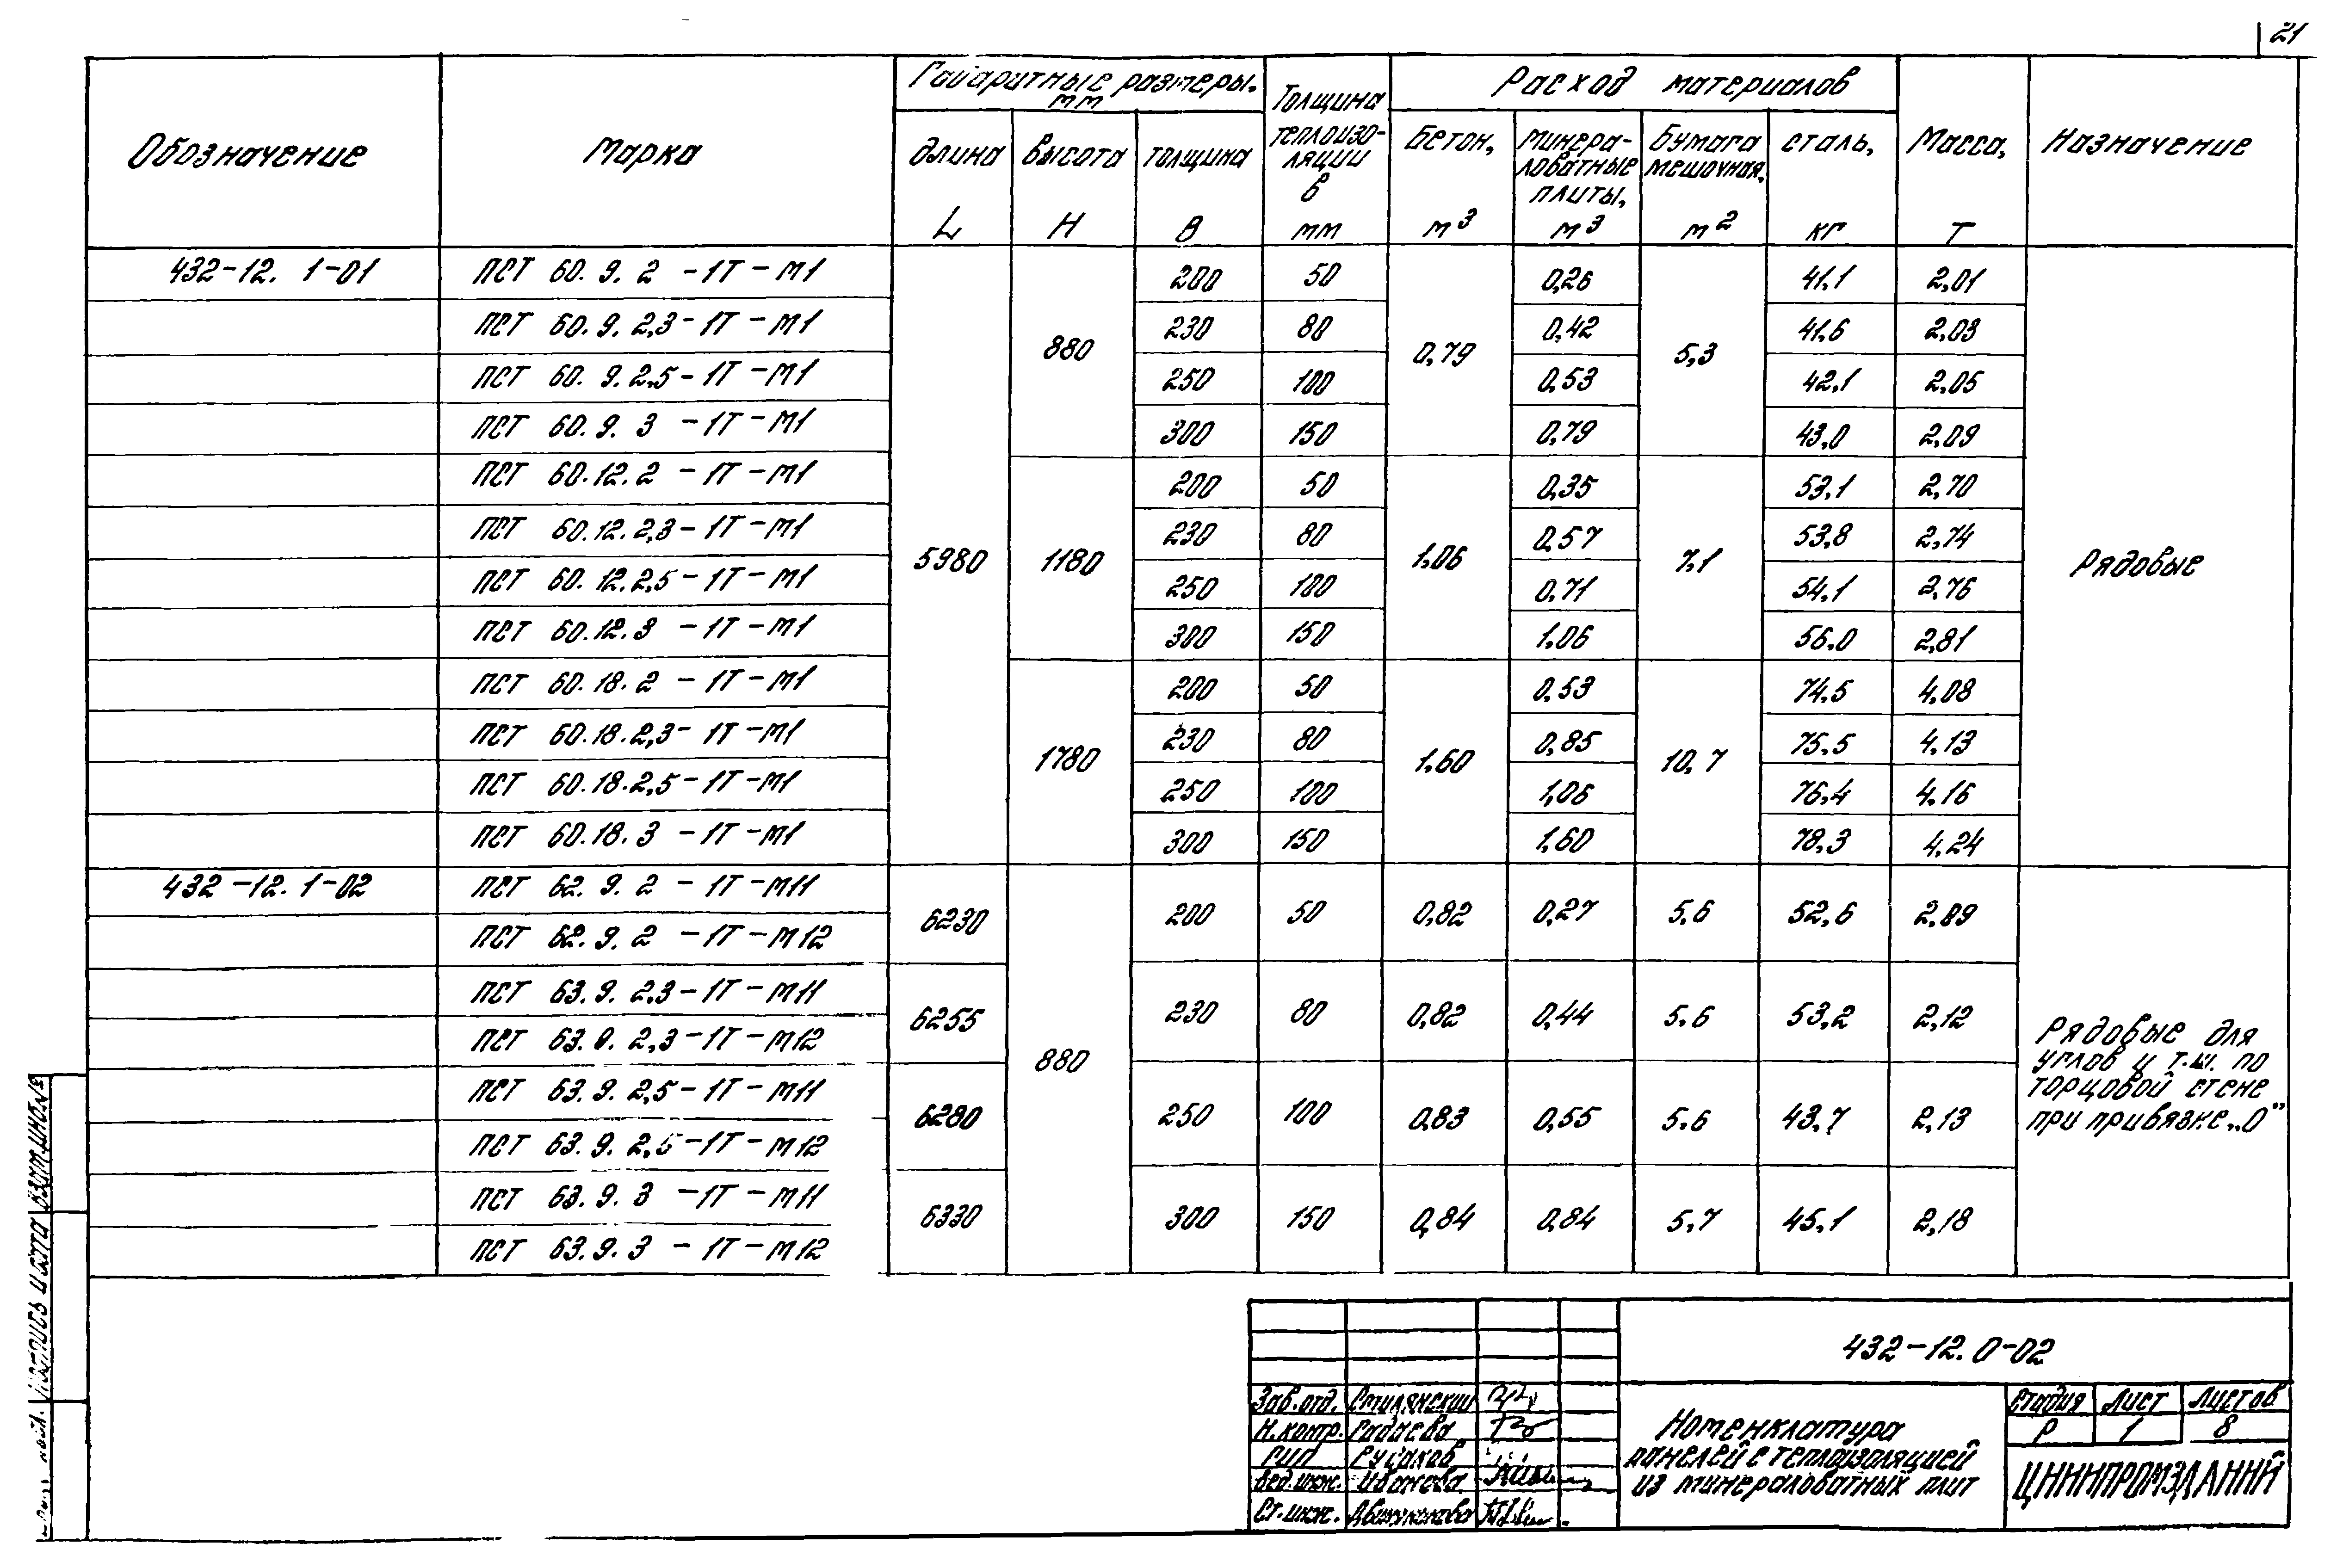 21
Обозначение Марка Габаритные размеры, мм Толщина теплоизоляции в мм Расход материалов Масса, т Назначение
длина L высота H толщина B Бетон, м3 Минераловатные плиты, м3 Бумага мешочная, м2 сталь, кг
432-12. 1-01 ПСТ 60. 9. 2 -1Т-М1 5980 880 200 50 0,79 0,26 5,3 41,1 2,01 Рядовые
ПСТ 60. 9. 2,3-1Т-М1 230 80 0,42 41,6 2,03
ПСТ 60. 9. 2,5-1Т-М1 250 100 0,53 42,1 2,05
ПСТ 60. 9. 3 -1Т-М1 300 150 0,79 43,0 2,09
ПСТ 60.12.2 -1Т-М1 1180 200 50 1,06 0,35 7,1 53,1 2,70
ПСТ 60.12.2,3-1Т-М1 230 80 0,57 53,8 2,74
ПСТ 60.12.2,5-1Т-М1 250 100 0,71 54,1 2,76
ПСТ 60.12.3 -1Т-М1 300 150 1,06 56,0 2,81
ПСТ 60.18.2 -1Т-М1 1780 200 50 1,60 0,53 10,7 74,5 4,08
ПСТ 60.18.2,3-1Т-М1 230 80 0,85 75,5 4,13
ПСТ 60.18.2,5-1Т-М1 250 100 1,06 76,4 4,16
ПСТ 60.18.3 -1Т-М1 300 150 1,60 78,3 4,24
432-12. 1-02 ПСТ 62. 9. 2 -1Т-М11 6230 880 200 50 0,82 0,27 5,6 52,6 2,09
ПСТ 62. 9. 2 -1Т-М12
ПСТ 63. 9. 2,3-1Т-М11 6255 230 80 0,82 0,44 5,6 53,2 2,12
ПСТ 63. 9. 2,3-1Т-М12
Рядовые для
углов и т.ш. по
торцовой стене
при привязке „0"
ПСТ 63. 9. 2,5-1Т-М11 6280 250 100 0,83 0,55 5,6 43,7 2,13
ПСТ 63. 9. 2,5-1Т-М12
ПСТ 63. 9. 3 -1Т-М11 6330 300 150 0,84 0,84 5,7 45,1 2,18
ПСТ 63. 9. 3 -1Т-М12
432-12. 0-02
Зав.отд.
Н.контр. Радаева
ГИП Русаков
Вед.инж. Иванова
Ст.инж.
Номенклатура
панелей с теплоизоляцией
из минераловатных плит
Стадия Лист Листов
Р 1 8
ЦНИИПРОМЗДАНИЙ
Подпись и дата
Взам.инв.№